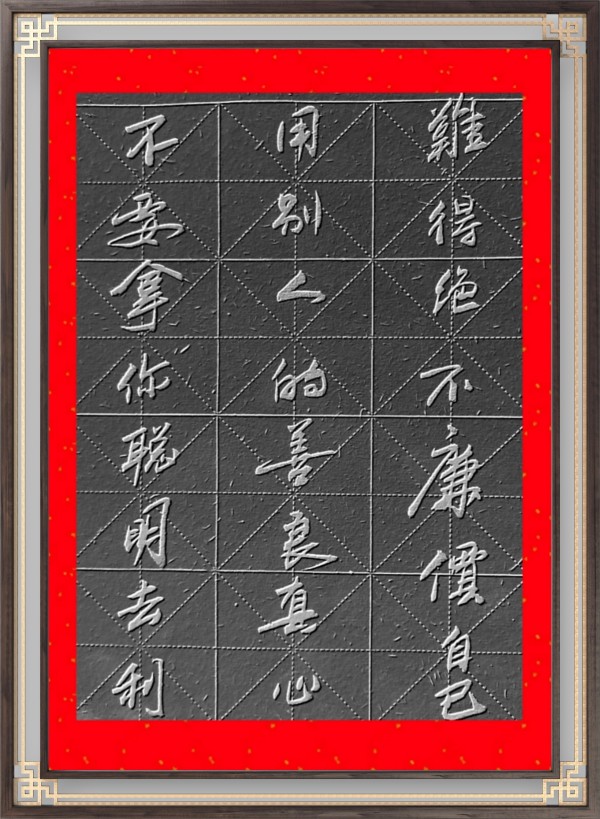 不要拿你聪明去利
用别人的善良真心
難得绝不廉價自己